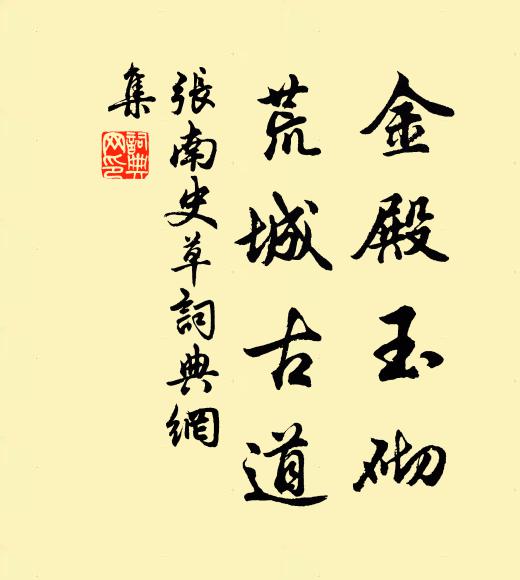 金殿玉砌
荒城古道
張南史草詞典網
集
詞典网印